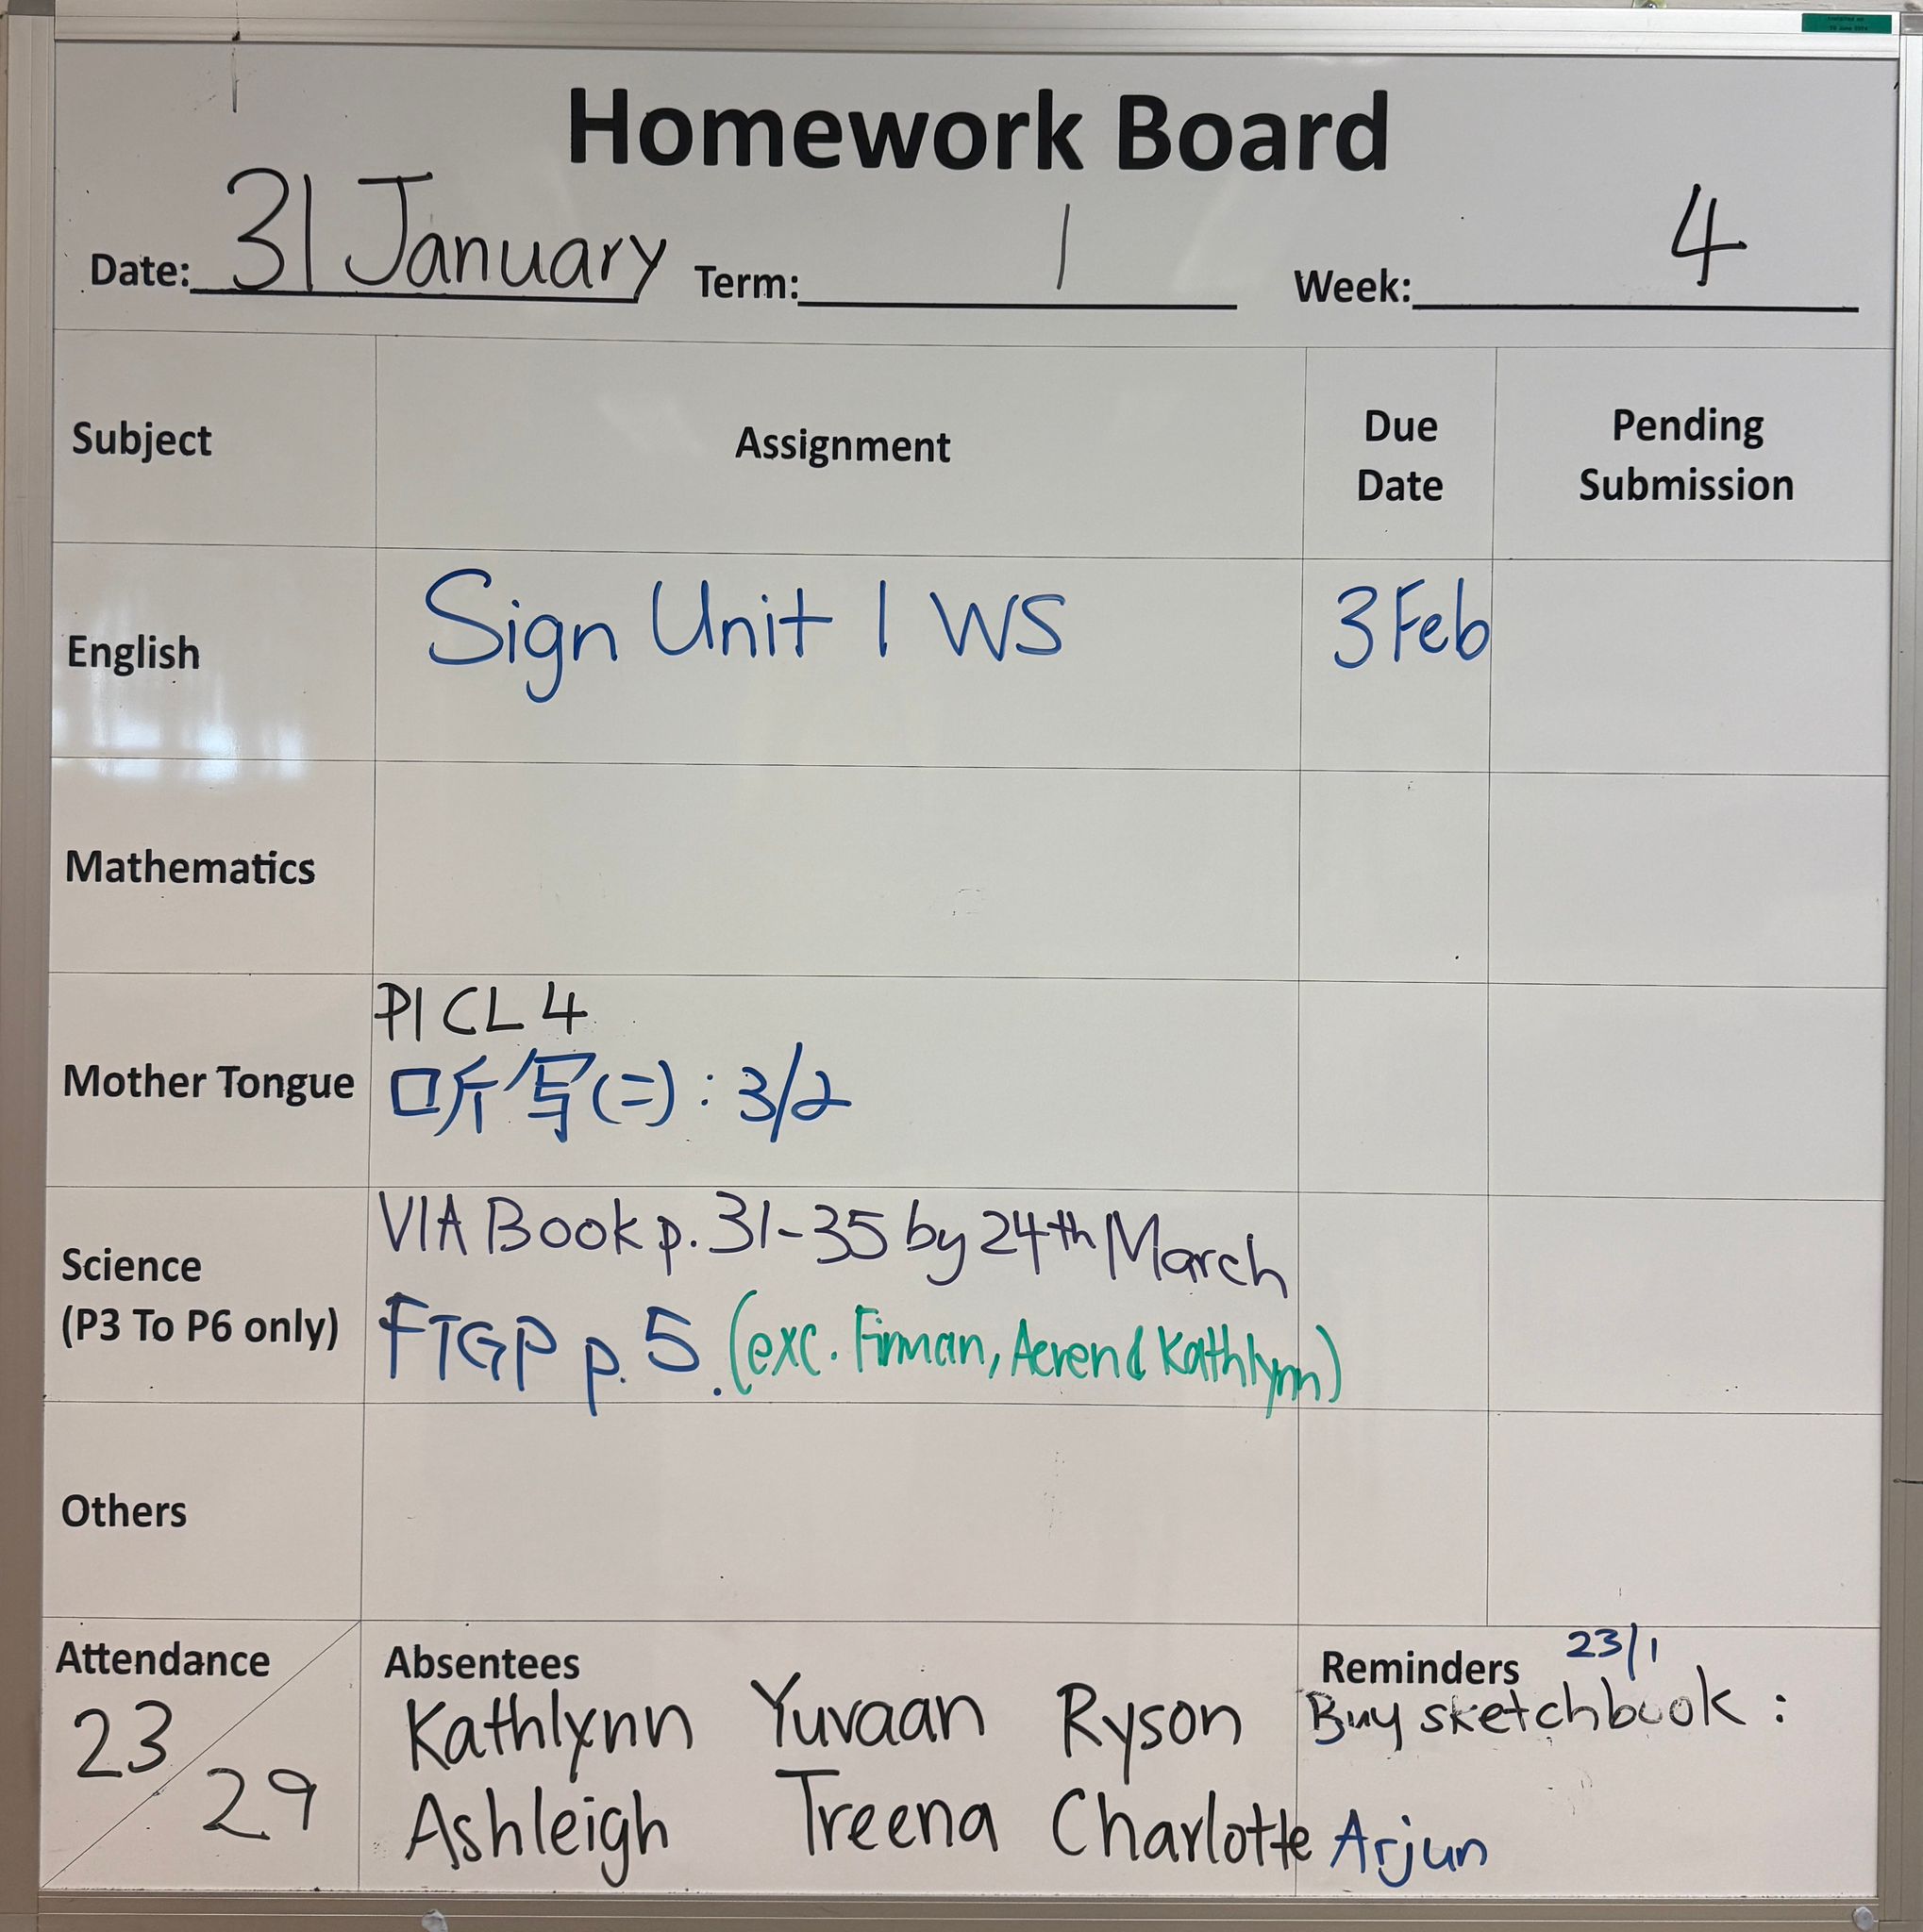 Homework Board
Date: 31 January Term: 1 Week: 4
Subject Assignment Due Date Pending Submission
English Sign Unit 1 WS 3 Feb
Mathematics
Mother Tongue
P1 CL 4
听写(二): 3/2
Science
(P3 To P6 only)
VIA Book p. 31-35 by 24th March
FTGP p. 5. (exc. Firman, Aeren & Kathlynn)
Others
Attendance
23/29
Absentees
Kathlynn Yuvaan Ryson
Ashleigh Treena Charlotte
Reminders 23/1
Buy sketchbook :
Arjun